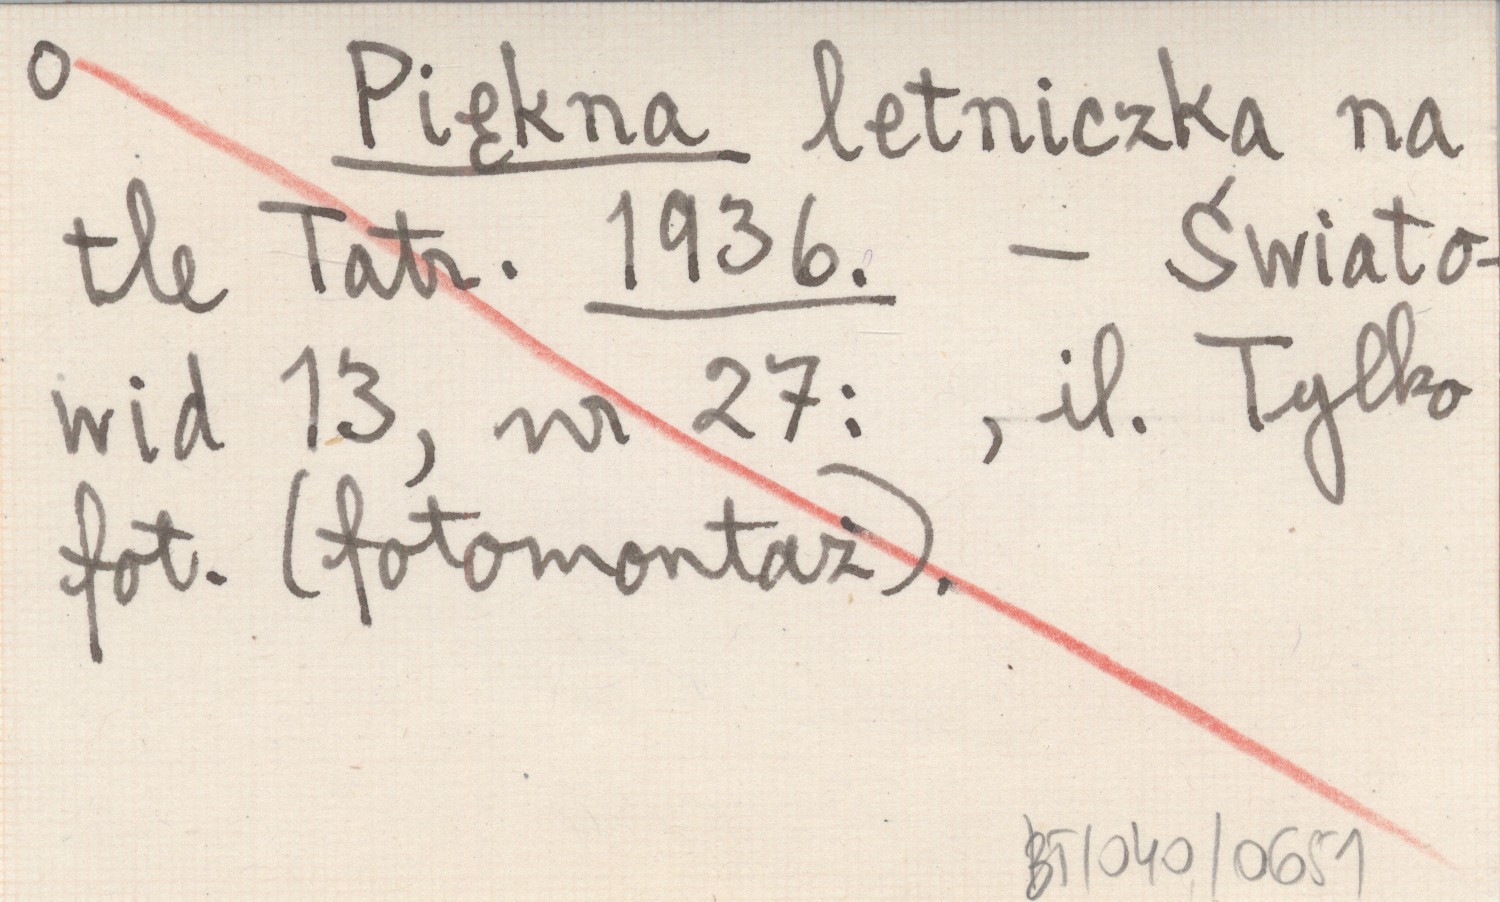 O Piękna letniczka na
tle Tatr. 1936. – Świato-
wid 13, nr 27: , il. Tylko
fot. (fotomontaż).
BT/040/0651